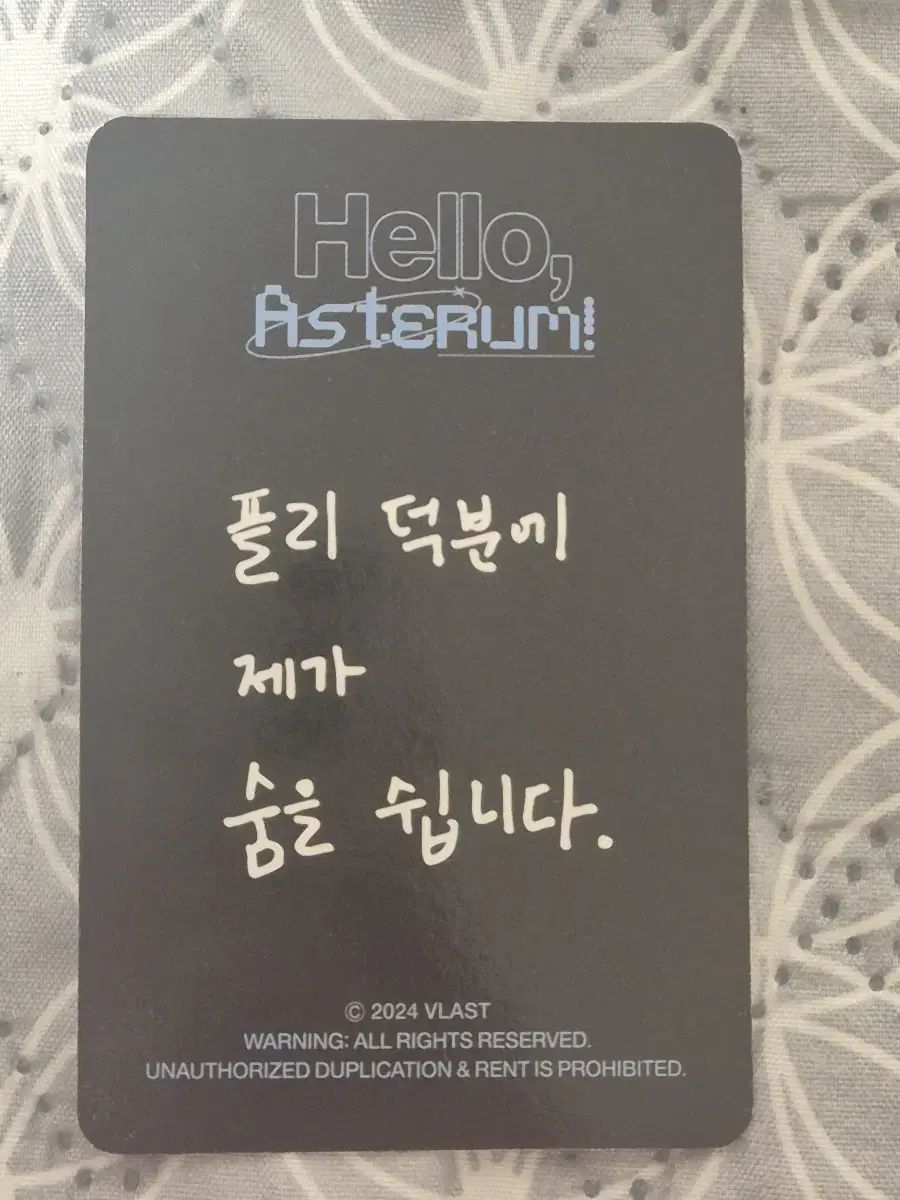 Hello,
Asterum!
플리 덕분에
제가
숨을 쉽니다.
© 2024 VLAST
WARNING: ALL RIGHTS RESERVED.
UNAUTHORIZED DUPLICATION & RENT IS PROHIBITED.